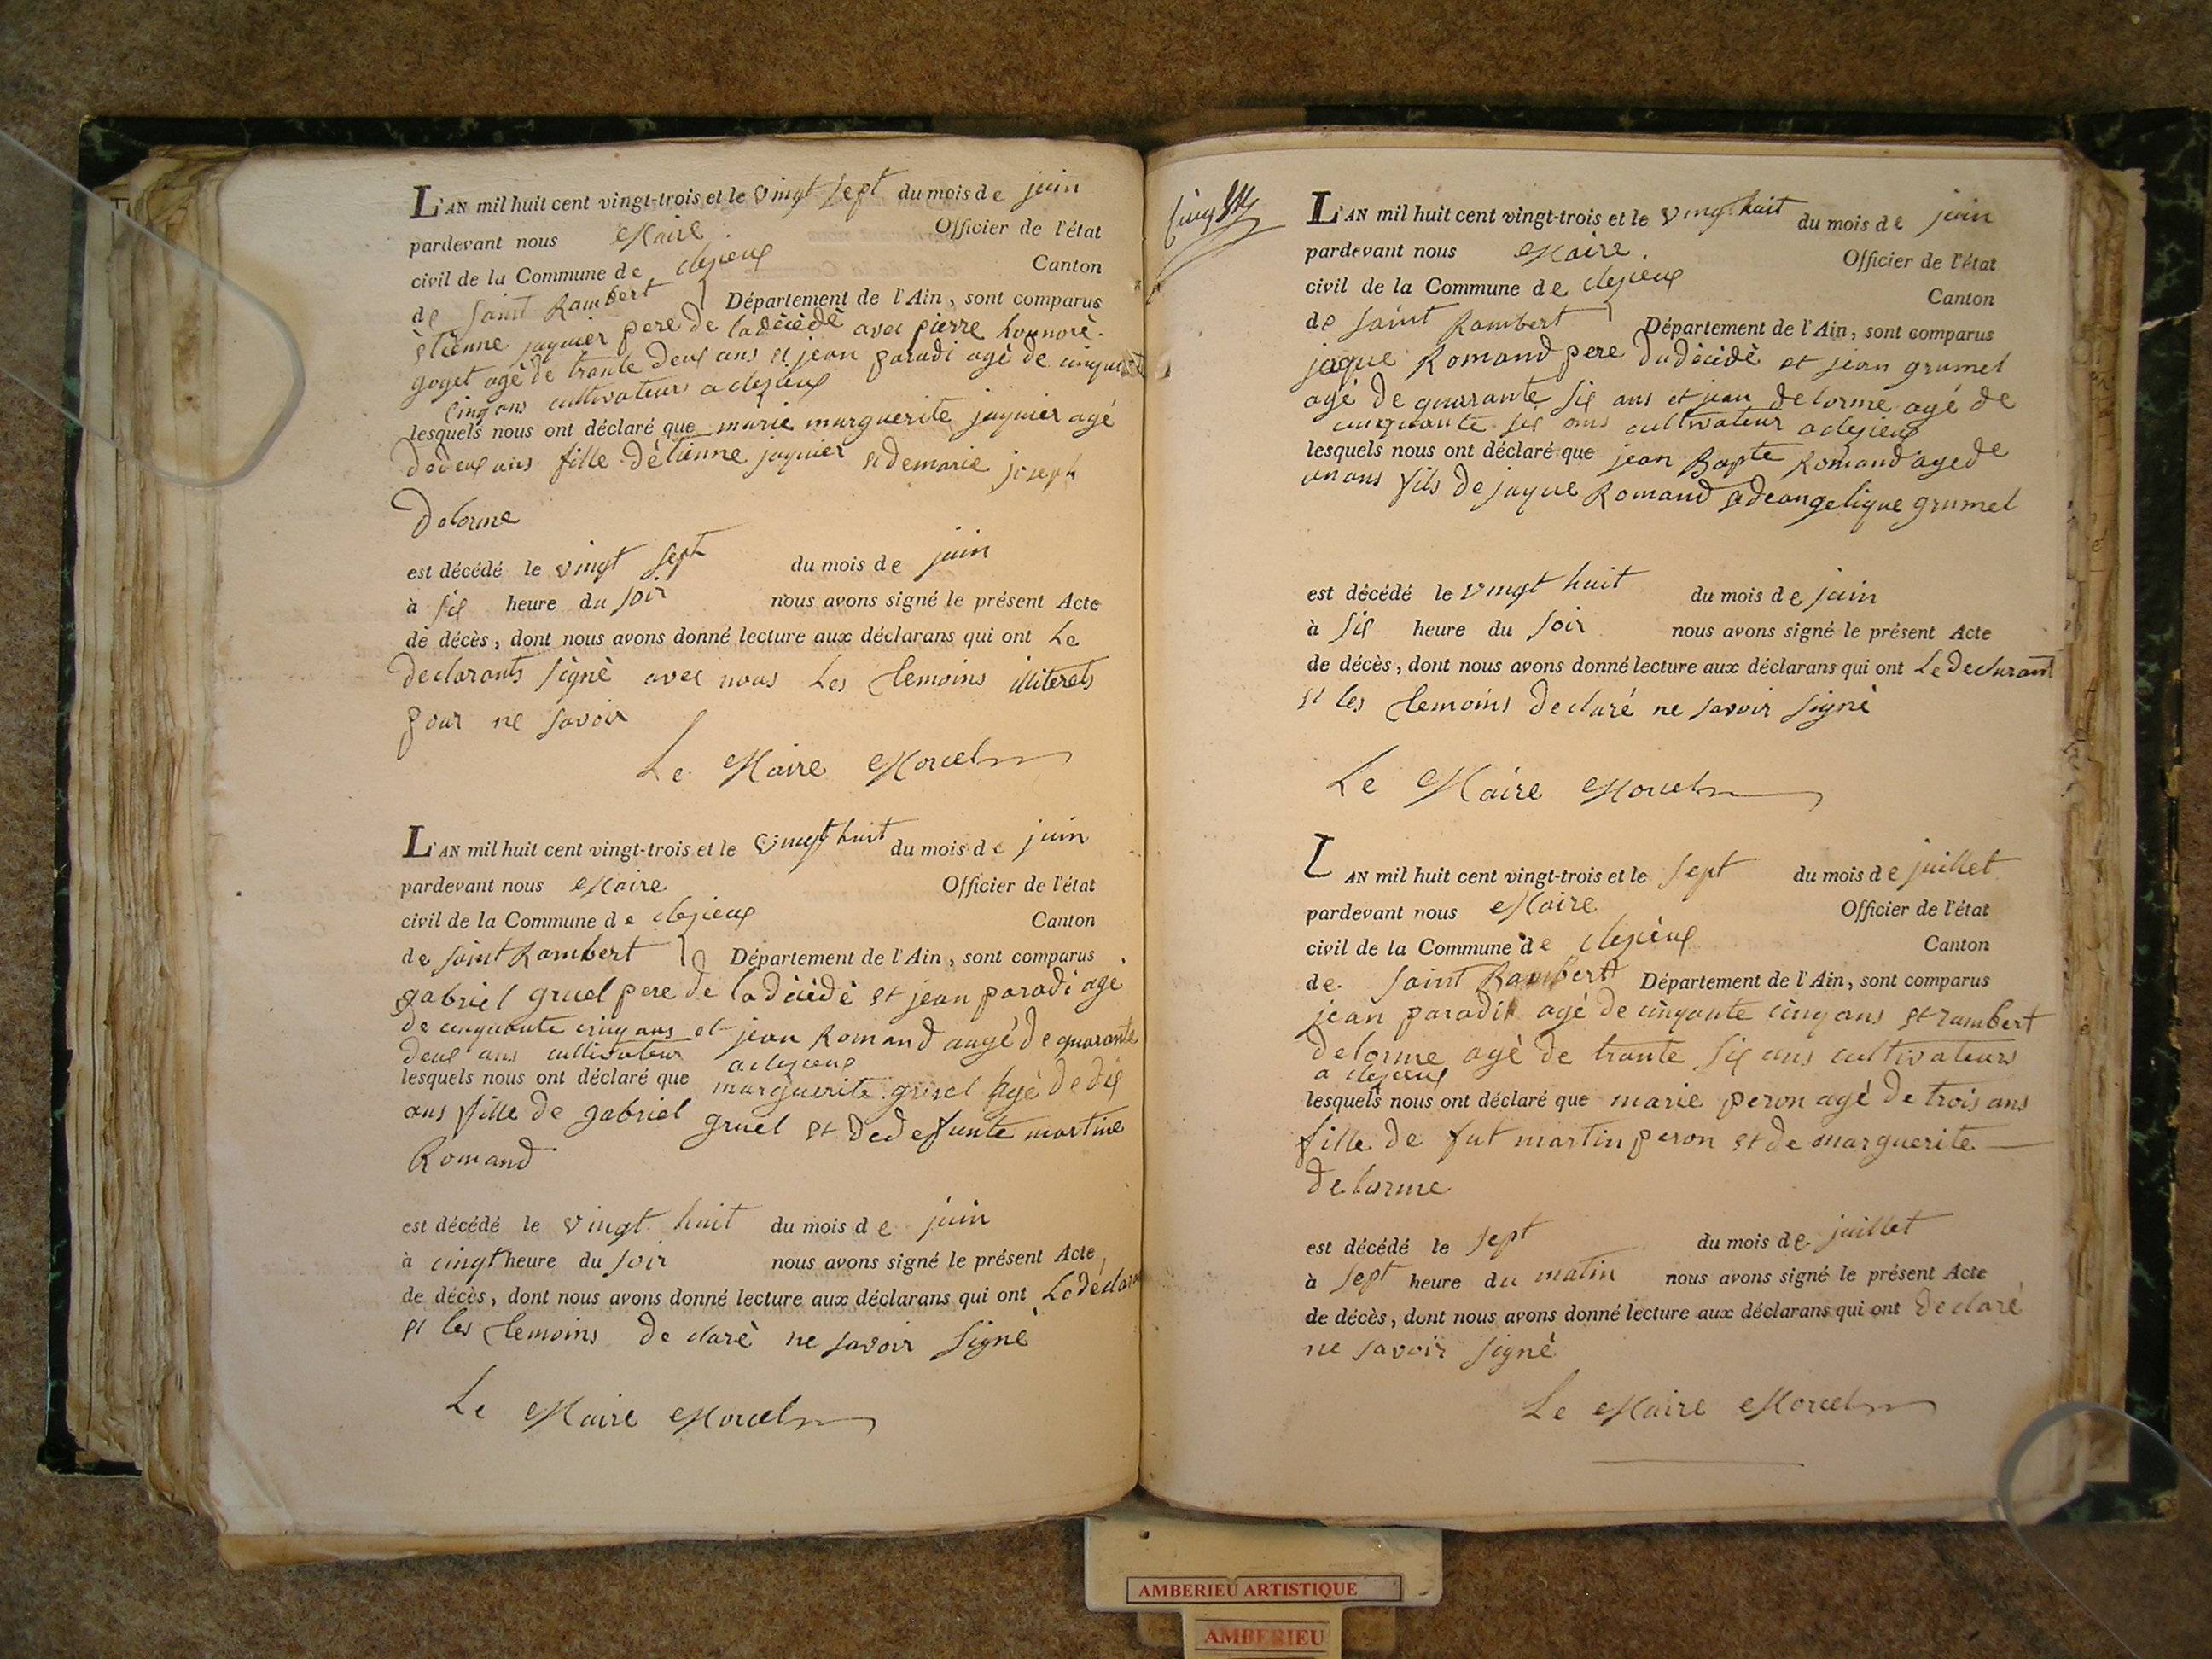 L'AN mil huit cent vingt-trois et le vingt sept du mois de juin
pardevant nous Maire Officier de l'état
civil de la Commune de clezieux Canton
de Saint Rambert Département de l'Ain, sont comparus
ètienne jaquier pere de ladècèdè avec pierre honnorè
goyet agè de trante deux ans et jean paradi agé de cinquante
cinq ans cultivateur a clezieux
lesquels nous ont déclaré que marie marguerite jaquier agé
dedeux ans fille d'etienne jaquier et demarie joseph
Delorme
est décédé le vingt sept du mois de juin
à six heure du soir nous avons signé le présent Acte
de décès, dont nous avons donné lecture aux déclarans qui ont Le
declarants signè avec nous Les temoins illiterets
pour ne savoir
Le Maire Morcel
L'AN mil huit cent vingt-trois et le vingt huit du mois de juin
pardevant nous Maire Officier de l'état
civil de la Commune de clezieux Canton
de saint Rambert Département de l'Ain, sont comparus
gabriel gruel pere de la dècèdè et jean paradi agé
de cinquante cinq ans et jean Romand augé de quarante
deux ans cultivateur a clezieux
lesquels nous ont déclaré que marguerite gruel hagé de dix
ans fille de gabriel gruel et dedefunte martine
Romand
est décédé le vingt huit du mois de juin
à cinqt heure du soir nous avons signé le présent Acte
de décès, dont nous avons donné lecture aux déclarans qui ont Le déclara
et les temoins declarè ne savoir signè
Le Maire Morcel
L'AN mil huit cent vingt-trois et le vingt huit du mois de juin
pardevant nous Maire Officier de l'état
civil de la Commune de clezieux Canton
de saint Rambert Département de l'Ain, sont comparus
jaque Romand pere dudècèdè et jean grumel
agé de quarante six ans et jean delorme agé de
cinquante six ans cultivateur a clezieux
lesquels nous ont déclaré que jean Bapte Romand agede
un ans fils de jaque Romand et deangelique grumel
est décédé le vingt huit du mois de juin
à six heure du soir nous avons signé le présent Acte
de décès, dont nous avons donné lecture aux déclarans qui ont Le declarant
et les temoins declaré ne savoir signè
Le Maire Morcel
L'AN mil huit cent vingt-trois et le sept du mois de juillet
pardevant nous Maire Officier de l'état
civil de la Commune de clezieux Canton
de saint Rambert Département de l'Ain, sont comparus
jean paradis agé de cinqante cinq ans et rambert
delorme agè de trante six ans cultivateurs
a clezieux
lesquels nous ont déclaré que marie peron agé de trois ans
fille de fut martin peron et de marguerite
delorme
est décédé le sept du mois de juillet
à sept heure du matin nous avons signé le présent Acte
de décès, dont nous avons donné lecture aux déclarans qui ont declaré
ne savoir signé
Le Maire Morcel
AMBERIEU ARTISTIQUE
AMBERIEU